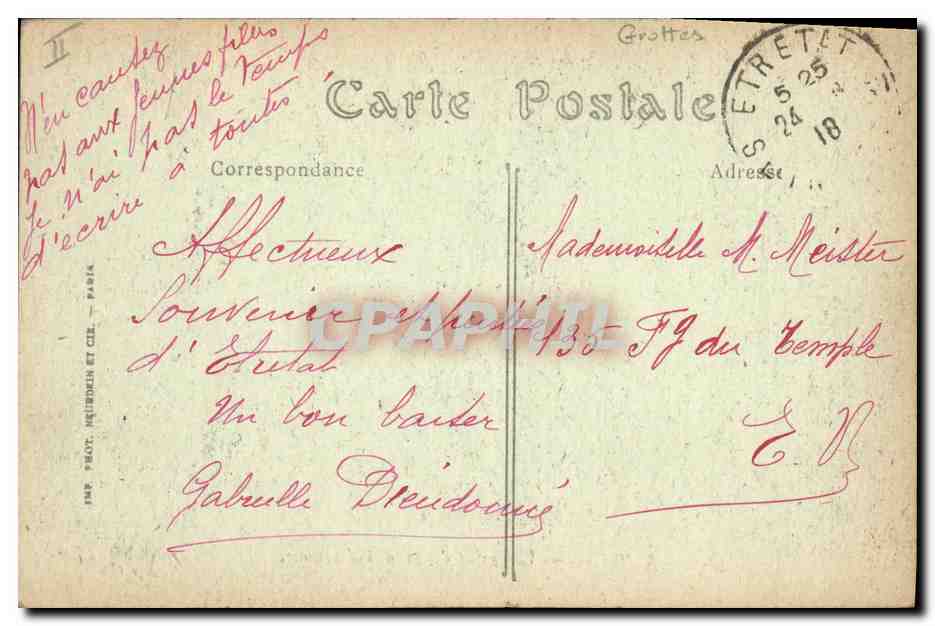 II
Grottes
N'en causez
pas aux jeunes filles
je n'ai pas le temps
d'écrire à toutes
ETRETAT
5 25
24
18
Carte Postale
Correspondance
Adresse
Affectueux
Souvenir et pensée
d'Etretat
Un bon baiser
Gabrielle Dieudonné
Mademoiselle M. Meister
135 Fg du Temple
E V
CPAPHIL
IMP. PHOT. NEURDEIN ET CIE. — PARIS